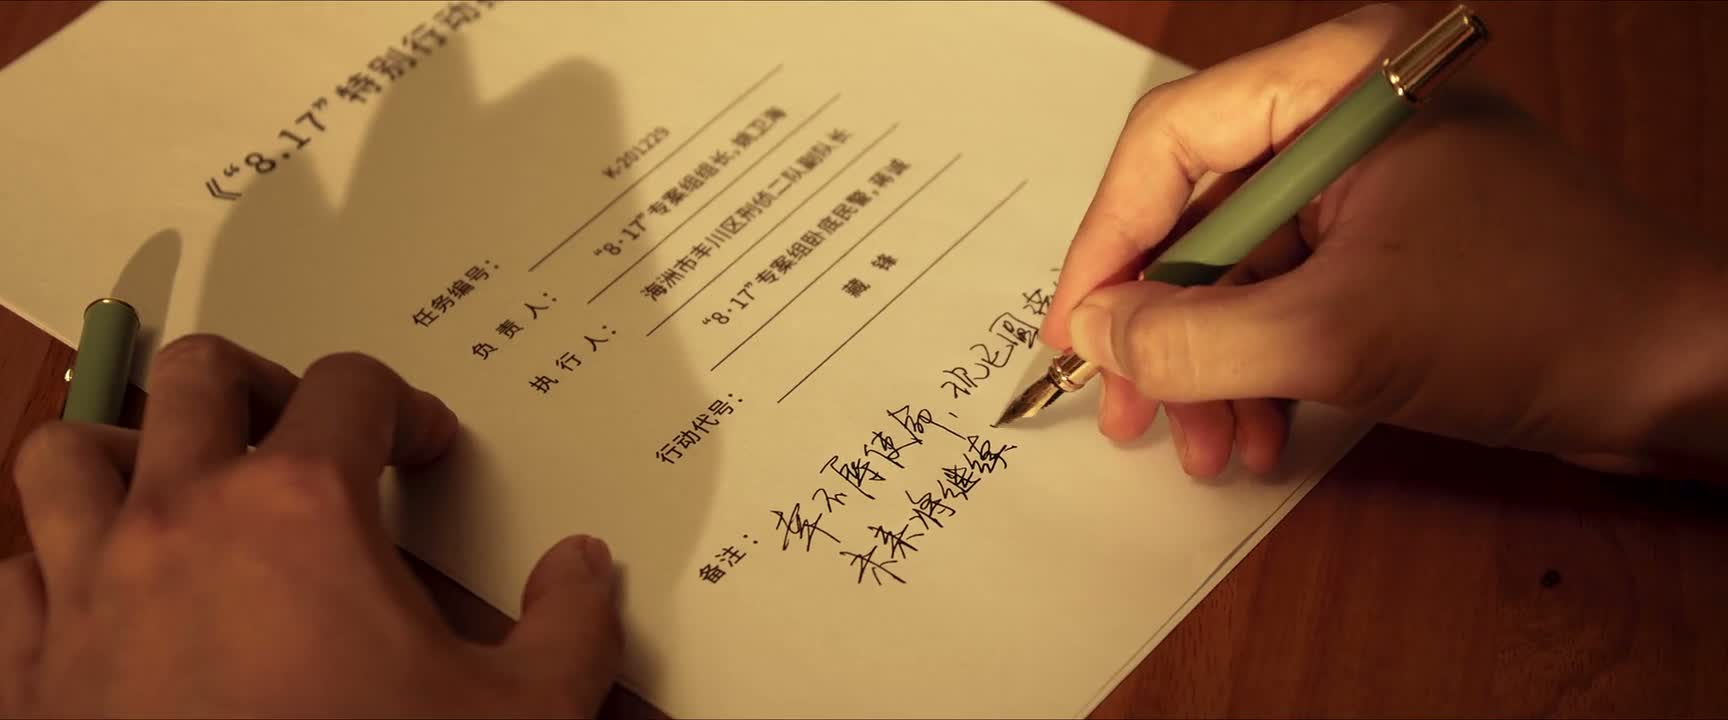 《“8.17”特别行动
任务编号： K-201229
负 责 人： “8·17”专案组组长，姚卫海
海洲市丰川区刑侦二队副队长
执 行 人： “8·17”专案组卧底民警，蒋诚
行动代号： 藏 锋
备注： 幸不辱使命，现已圆
未来将继续